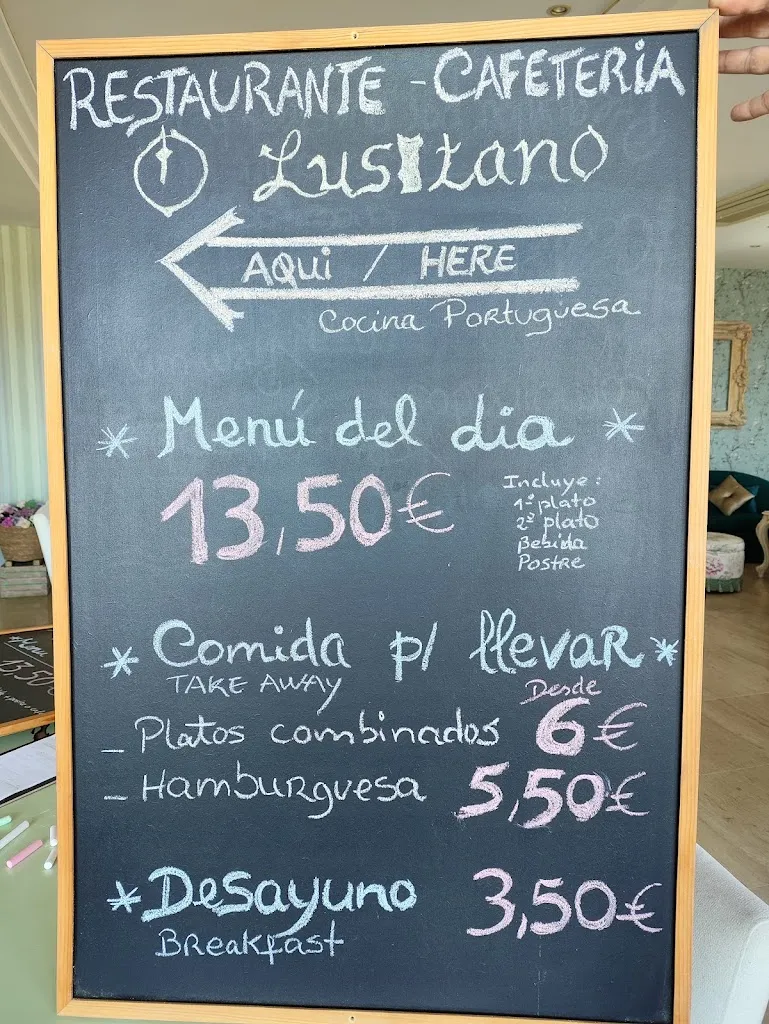 RESTAURANTE - CAFETERIA
Lusitano
AQUI / HERE
Cocina Portuguesa
* Menú del dia *
13,50€
Incluye:
1º plato
2º plato
Bebida
Postre
* Comida p/ llevar *
TAKE AWAY
Desde
- Platos combinados 6€
- Hamburguesa 5,50€
* Desayuno 3,50€
Breakfast
Menu
13,50